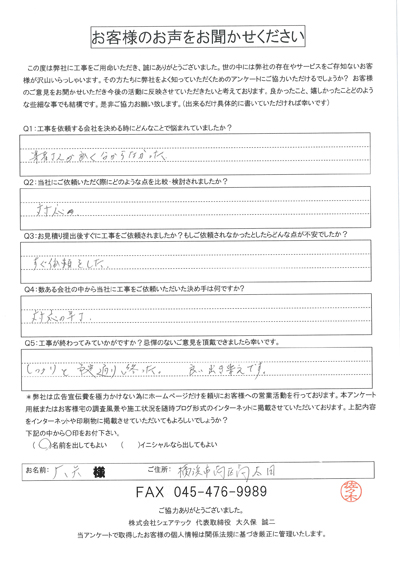 お客様のお声をお聞かせください
この度は弊社に工事をご用命いただき、誠にありがとうございました。世の中には弊社の存在やサービスをご存知ないお客
様が沢山いらっしゃいます。その方たちに弊社をよく知っていただくためのアンケートにご協力いただけるでしょうか? お客様
のご意見をお聞かせいただき今後の活動に反映させていただきたいと考えております。良かったこと、嬉しかったことどのよう
な些細な事でも結構です。是非ご協力お願い致します。(出来るだけ具体的に書いていただければ幸いです)
Q1:工事を依頼する会社を決める時にどんなことで悩まれていましたか?
業者さんが
Q2:当社にご依頼いただく際にどのような点を比較・検討されましたか?
対応
Q3:お見積り提出後すぐに工事をご依頼されましたか?もしご依頼されなかったとしたらどんな点が不安でしたか?
すぐ依頼をした。
Q4:数ある会社の中から当社に工事をご依頼いただいた決め手は何ですか?
対応の
Q5:工事が終わってみていかがですか?忌憚のないご意見を頂戴できましたら幸いです。
しっかりと 通り終った。 良い出き栄えです。
*弊社は広告宣伝費を極力かけない為にホームページだけを頼りにお客様への営業活動を行っております。本アンケート
用紙またはお客様宅の調査風景や施工状況を随時ブログ形式のインターネットに掲載させていただいております。上記内容
をインターネットや印刷物に掲載させていただいてもよろしいでしょうか?
下記の中から〇印をお付下さい。
(〇)名前を出してもよい ( )イニシャルなら出してもよい
お名前: 様 ご住所: 横浜市
FAX 045-476-9989
佐々木
ご協力ありがとうございました。
株式会社シェアテック 代表取締役 大久保 誠二
当アンケートで取得したお客様の個人情報は関係法規に基づき厳正に管理いたします。